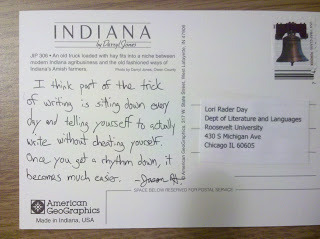 INDIANA
by Darryl Jones
JIP 306 • An old truck loaded with hay fits into a niche between
modern Indiana agribusiness and the old fashioned ways of
Indiana's Amish farmers.
Photo by Darryl Jones
I think part of the trick
of writing is sitting down every
day and telling yourself to actually
write without cheating yourself.
Once you get a rhythm down, it
becomes much easier.
American
GeoGraphics
Made in Indiana, USA
American GeoGraphics
State Street, West Lafayette, IN
Lori Rader Day
Dept of Literature and Languages
Roosevelt University
430 S Michigan Ave
Chicago IL 60605
SPACE BELOW RESERVED FOR POSTAL SERVICE